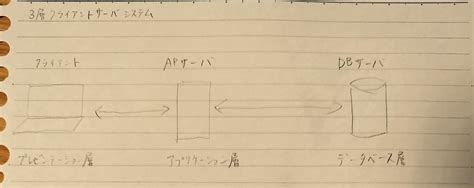 3層クライアントサーバシステム
クライアント APサーバ DBサーバ
プレゼンテーション層 アプリケーション層 データベース層